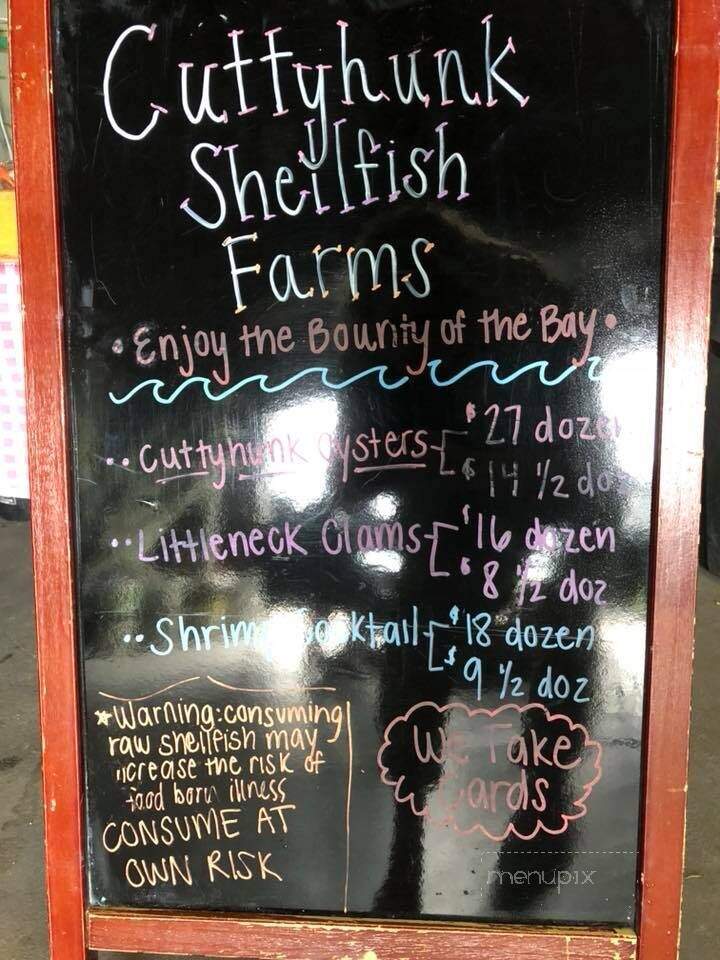 Cuttyhunk
Shellfish
Farms
• Enjoy the Bounty of the Bay •
•• Cuttyhunk Oysters $27 dozen
$14 1/2 doz
•• Littleneck Clams $16 dozen
$8 1/2 doz
•• Shrimp Cocktail $18 dozen
$9 1/2 doz
*Warning: consuming
raw shellfish may
increase the risk of
food born illness
CONSUME AT
OWN RISK
We Take
Cards
menupix